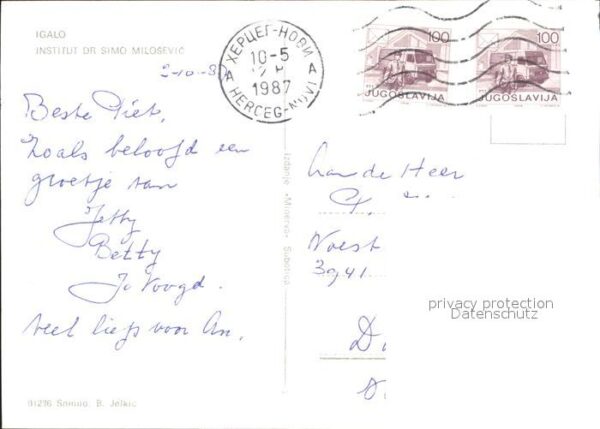 IGALO
INSTITUT DR SIMO MILOŠEVIĆ
ХЕРЦЕГ-НОВИ
10-5
1987
A A
HERCEG-NOVI
100
JUGOSLAVIJA
100
JUGOSLAVIJA
Beste Piet,
Zoals beloofd een
groetje van
Jetty
Betty
Voogd.
veel liefs voor An.
Izdanje «Minerva» Subotica
Aan de Heer
Voest
3941
D
privacy protection
Datenschutz
Snimio: B. Jelkić